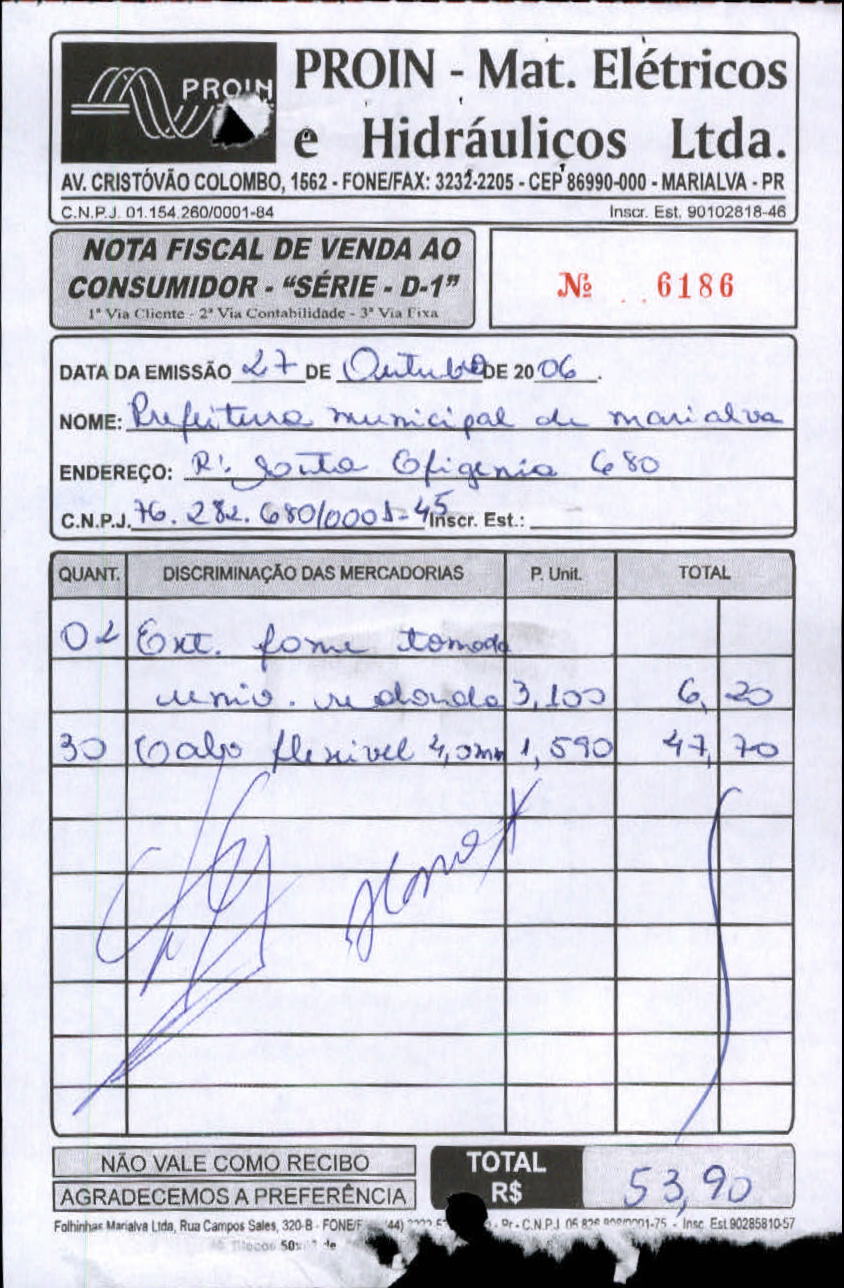 PROIN
PROIN - Mat. Elétricos
e Hidráulicos Ltda.
AV. CRISTÓVÃO COLOMBO, 1562 - FONE/FAX: 3232-2205 - CEP 86990-000 - MARIALVA - PR
C.N.P.J. 01.154.260/0001-84 Inscr. Est. 90102818-46
NOTA FISCAL DE VENDA AO
CONSUMIDOR - "SÉRIE - D-1"
1ª Via Cliente - 2ª Via Contabilidade - 3ª Via Fixa
Nº 6186
DATA DA EMISSÃO 27 DE Outubro DE 2006.
NOME: Prefeitura municipal de marialva
ENDEREÇO: R: Santa Efigenia 680
C.N.P.J. 76.282.680/0001-45 Inscr. Est.:
QUANT. DISCRIMINAÇÃO DAS MERCADORIAS P. Unit. TOTAL
02 Ext. fome tomada
univ. redondo 3,100 6,20
30 Cabo flexivel 4,0mm 1,590 47,70
NÃO VALE COMO RECIBO
AGRADECEMOS A PREFERÊNCIA
TOTAL
R$ 53,90
Folhinhas Marialva Ltda, Rua Campos Sales, 320-B - FONE/F (44) - Pr - C.N.P.J. 05 826 /0001-75 - Insc. Est.90285810-57
Blocos 50x de